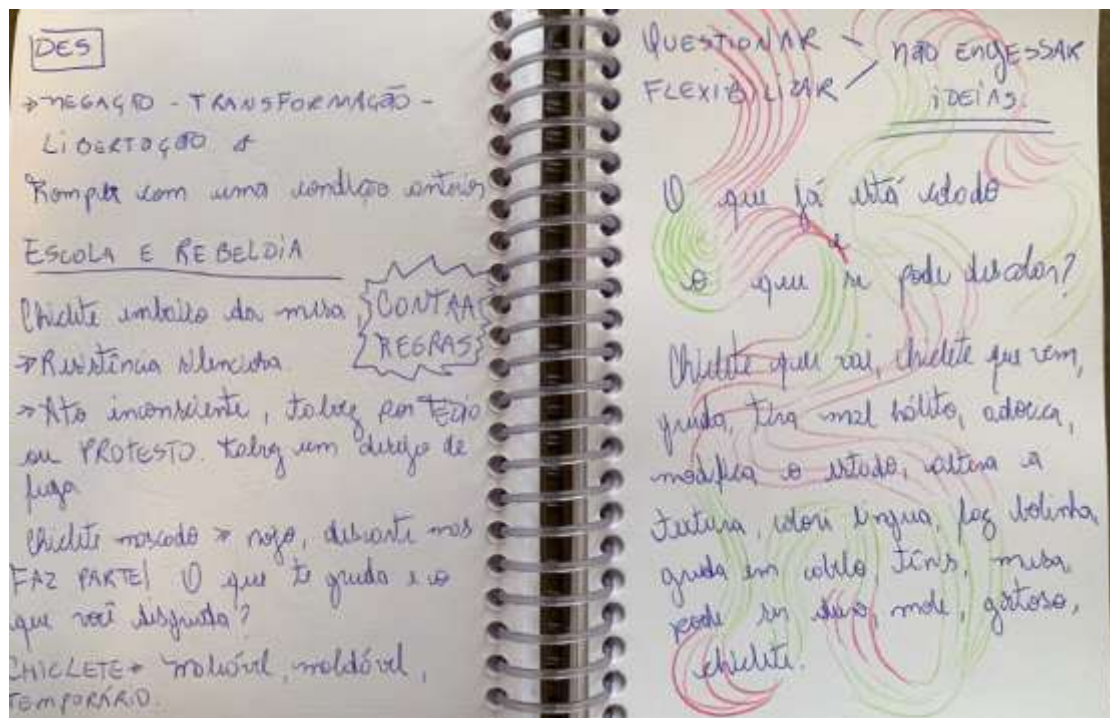 DES
→ NEGAÇÃO - TRANSFORMAÇÃO -
LIBERTAÇÃO
Romper com uma condição anterior
ESCOLA E REBELDIA
Chiclete embaixo da mesa
CONTRA
REGRAS
→ Resistência silenciosa
→ Ato inconsciente, talvez por TÉDIO
ou PROTESTO. Talvez um desejo de
fuga
Chiclete mascado → nojo, descarte mas
FAZ PARTE! O que te gruda e o
que você desgruda?
CHICLETE → maleável, moldável,
TEMPORÁRIO.
QUESTIONAR
FLEXIBILIZAR
NÃO ENGESSAR
IDEIAS.
O que já está colado
e
o que se pode descolar?
Chiclete que vai, chiclete que vem,
gruda, tira mal hálito, adoça,
modifica o estado, altera a
textura, colore língua, faz bolinha,
gruda em cabelo, tênis, mesa,
pode ser duro, mole, gostoso,
chiclete.